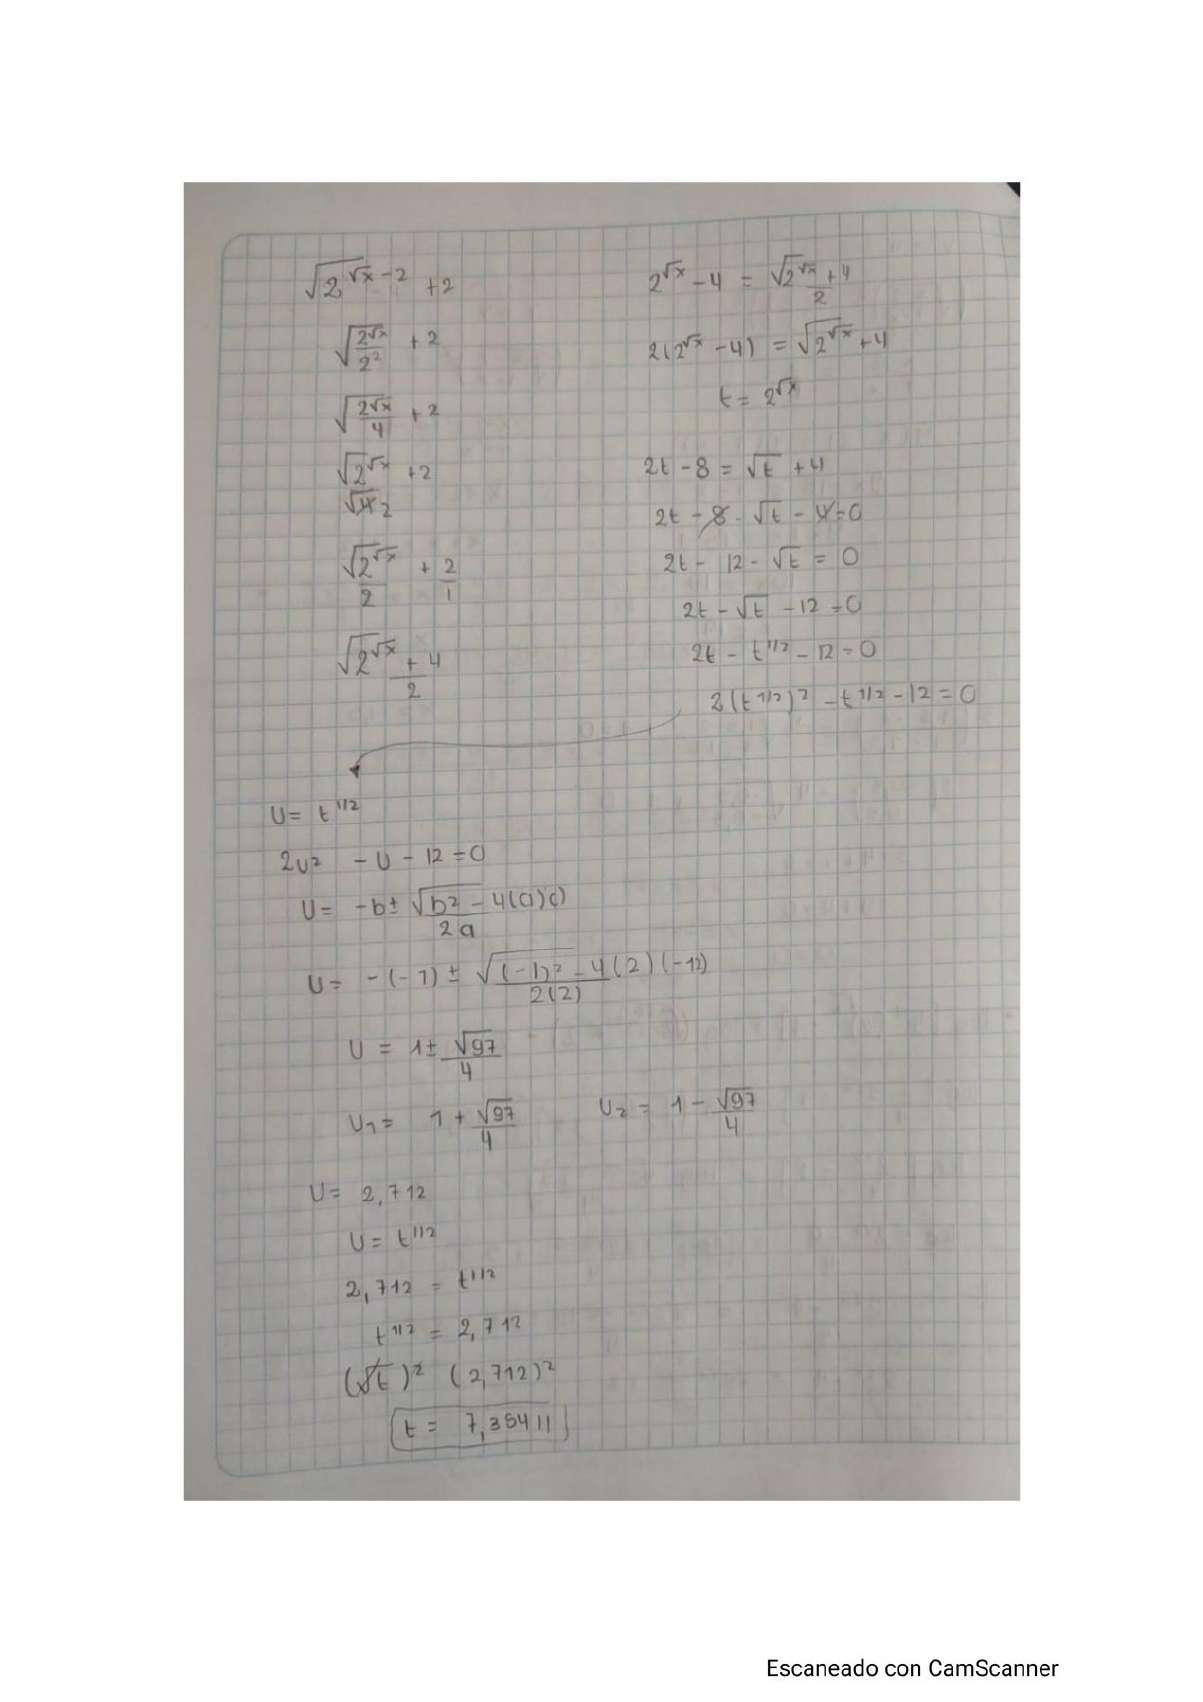 √2^√x-2 +2
√2√x/2² +2
√2√x/4 +2
√2^√x/√4 2 +2
√2^√x/2 + 2/1
√2^√x + 4/2
2^√x - 4 = √2^√x + 4/2
2(2^√x - 4) = √2^√x + 4
t = 2^√x
2t - 8 = √t + 4
2t - 8 - √t - 4 = 0
2t - 12 - √t = 0
2t - √t - 12 = 0
2t - t^1/2 - 12 = 0
2(t^1/2)² - t^1/2 - 12 = 0
U = t^1/2
2U² - U - 12 = 0
U = -b ± √b² - 4(a)c)/2a
U = -(-1) ± √(-1)² - 4(2)(-12)/2(2)
U = 1 ± √97/4
U₁ = 1 + √97/4 U₂ = 1 - √97/4
U = 2,712
U = t^1/2
2,712 = t^1/2
t^1/2 = 2,712
(√t)² (2,712)²
t = 7,35411
Escaneado con CamScanner